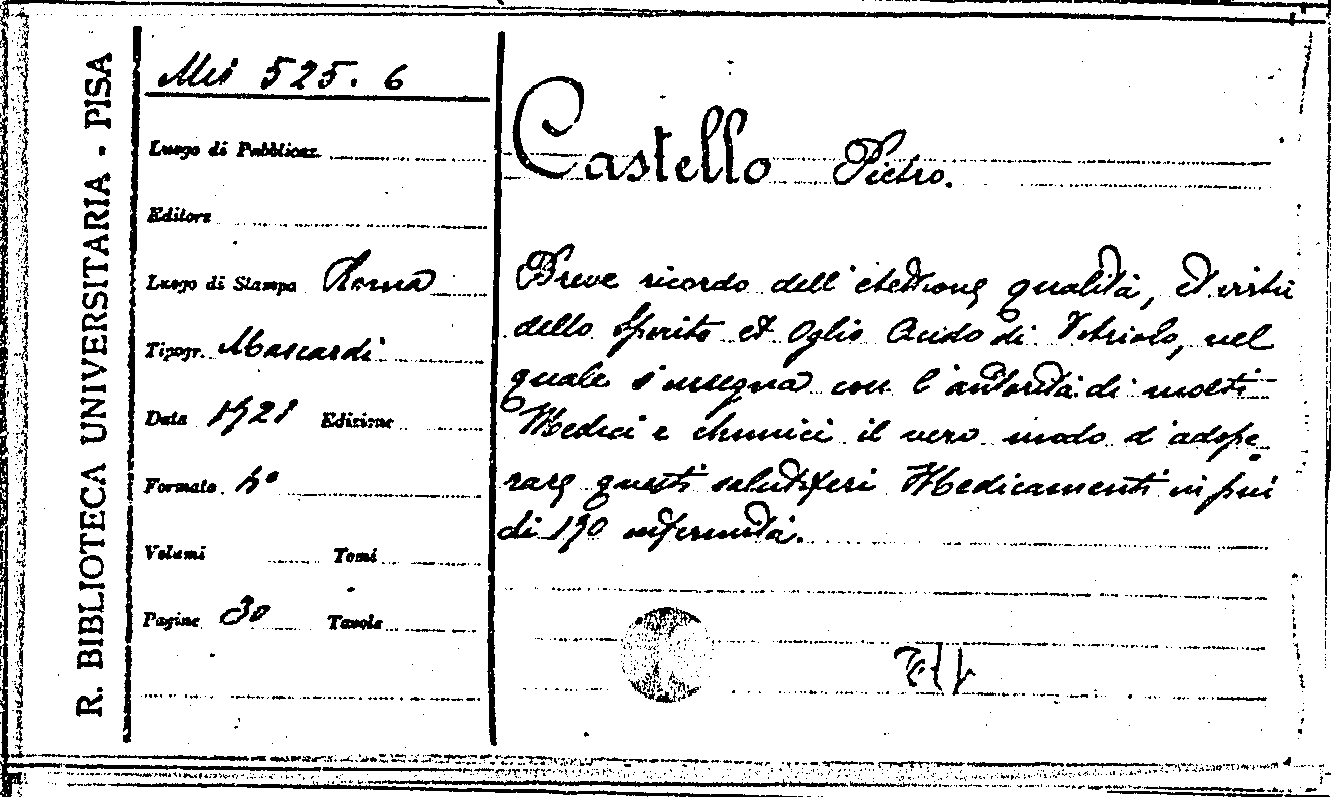 R. BIBLIOTECA UNIVERSITARIA - PISA
Mis 525. 6
Luogo di Pubblicaz.
Editore
Luogo di Stampa Roma
Tipogr. Mascardi
Data 1621 Edizione
Formato 4º
Volumi Tomi
Pagine 30 Tavole
Castello Pietro.
Breve ricordo dell'elettione, qualità, et virtù
dello Spirito et Oglio Acido di Vitriolo, nel
quale s'insegna con l'autorità di molti
Medici e chimici il vero modo d'adope
rare questi salutiferi Medicamenti in piu
di 190 infermità.